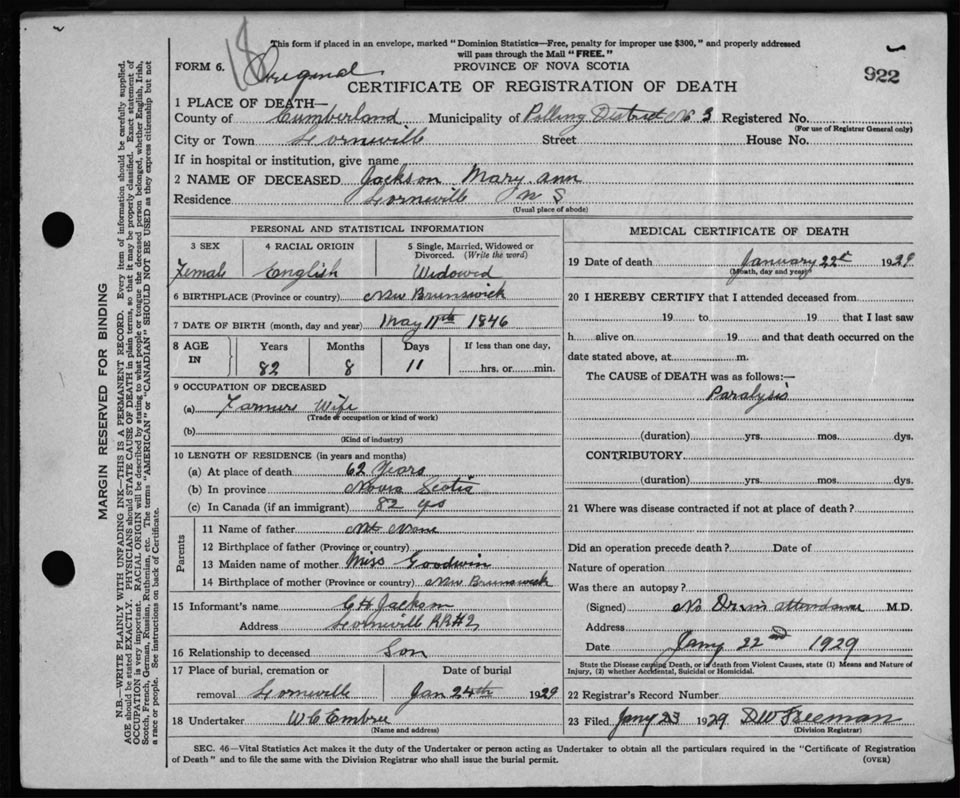 18
This form if placed in an envelope, marked "Dominion Statistics—Free, penalty for improper use $300," and properly addressed
will pass through the Mail "FREE."
FORM 6. Original PROVINCE OF NOVA SCOTIA 922
CERTIFICATE OF REGISTRATION OF DEATH
1 PLACE OF DEATH—
County of Cumberland Municipality of Polling District No 3 Registered No.
(For use of Registrar General only)
City or Town Lorneville Street House No.
If in hospital or institution, give name
2 NAME OF DECEASED Jackson Mary. ann
Residence Lorneville N S
(Usual place of abode)
PERSONAL AND STATISTICAL INFORMATION
3 SEX 4 RACIAL ORIGIN 5 Single, Married, Widowed or Divorced. (Write the word)
Female English Widowed
6 BIRTHPLACE (Province or country) New Brunswick
7 DATE OF BIRTH (month, day and year) May 11th 1846
8 AGE IN Years Months Days If less than one day,
82 8 11 hrs. or min.
9 OCCUPATION OF DECEASED
(a) Farmers Wife
(Trade or occupation or kind of work)
(b)
(Kind of industry)
10 LENGTH OF RESIDENCE (in years and months)
(a) At place of death 62 Years
(b) In province Nova Scotia
(c) In Canada (if an immigrant) 82 yrs
Parents
11 Name of father
12 Birthplace of father (Province or country)
13 Maiden name of mother Miss Goodwin
14 Birthplace of mother (Province or country) New Brunswick
15 Informant's name C H Jackson
Address Lorneville RR#2
16 Relationship to deceased Son
17 Place of burial, cremation or Date of burial
removal Lorneville Jan 24th 1929
18 Undertaker W C Embree
(Name and address)
MEDICAL CERTIFICATE OF DEATH
19 Date of death January 22nd 1929
(Month, day and year)
20 I HEREBY CERTIFY that I attended deceased from
19 to 19 that I last saw
h alive on 19 and that death occurred on the
date stated above, at m.
The CAUSE of DEATH was as follows:—
Paralysis
(duration) yrs. mos. dys.
CONTRIBUTORY.
(duration) yrs. mos. dys.
21 Where was disease contracted if not at place of death?
Did an operation precede death? Date of
Nature of operation
Was there an autopsy?
(Signed) No Dr in attendance M.D.
Address
Date Jany 22nd 1929
State the Disease causing Death, or in death from Violent Causes, state (1) Means and Nature of
Injury, (2) whether Accidental, Suicidal or Homicidal.
22 Registrar's Record Number
23 Filed Jany 23 1929 DW Freeman
(Division Registrar)
SEC. 46—Vital Statistics Act makes it the duty of the Undertaker or person acting as Undertaker to obtain all the particulars required in the "Certificate of Registration
of Death" and to file the same with the Division Registrar who shall issue the burial permit. (OVER)
MARGIN RESERVED FOR BINDING
N.B.—WRITE PLAINLY WITH UNFADING INK—THIS IS A PERMANENT RECORD. Every item of information should be carefully supplied.
AGE should be stated EXACTLY. PHYSICIANS should STATE CAUSE OF DEATH in plain terms, so that it may be properly classified. Exact statement of
OCCUPATION is very important. RACIAL ORIGIN will be described by stating to what people or tongue the deceased person belonged, whether English, Irish,
Scotch, French, German, Russian, Ruthenian, etc. The terms "AMERICAN" or "CANADIAN" SHOULD NOT BE USED as they express citizenship but not
a race or people. See instructions on back of Certificate.